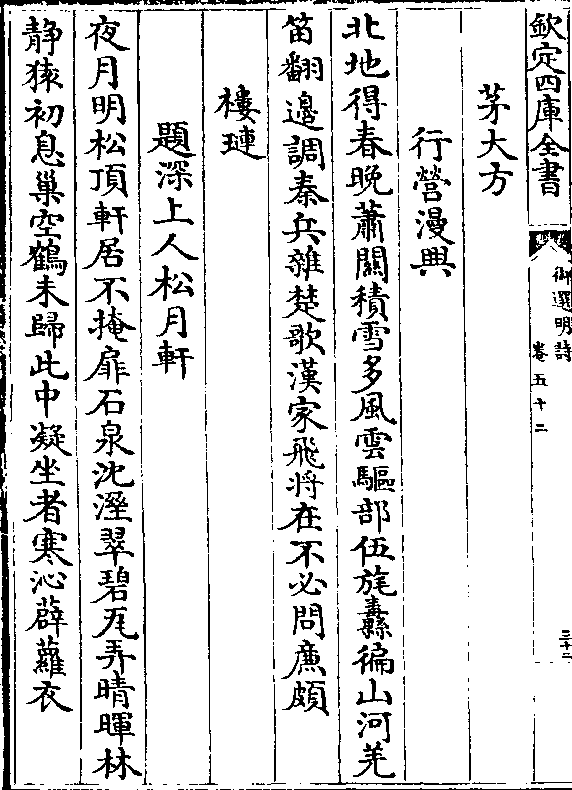 欽定四庫全書
御選明詩
卷五十二
三十二
茅大方
行營漫興
北地得春晚蕭關積雪多風雲驅部伍旄纛徧山河羌
笛翻邊調秦兵雜楚歌漢家飛將在不必問廉頗
樓璉
題深上人松月軒
夜月明松頂軒居不掩扉石泉沈溼翠碧瓦弄晴暉林
静猿初息巢空鶴未歸此中凝坐者寒沁薜蘿衣